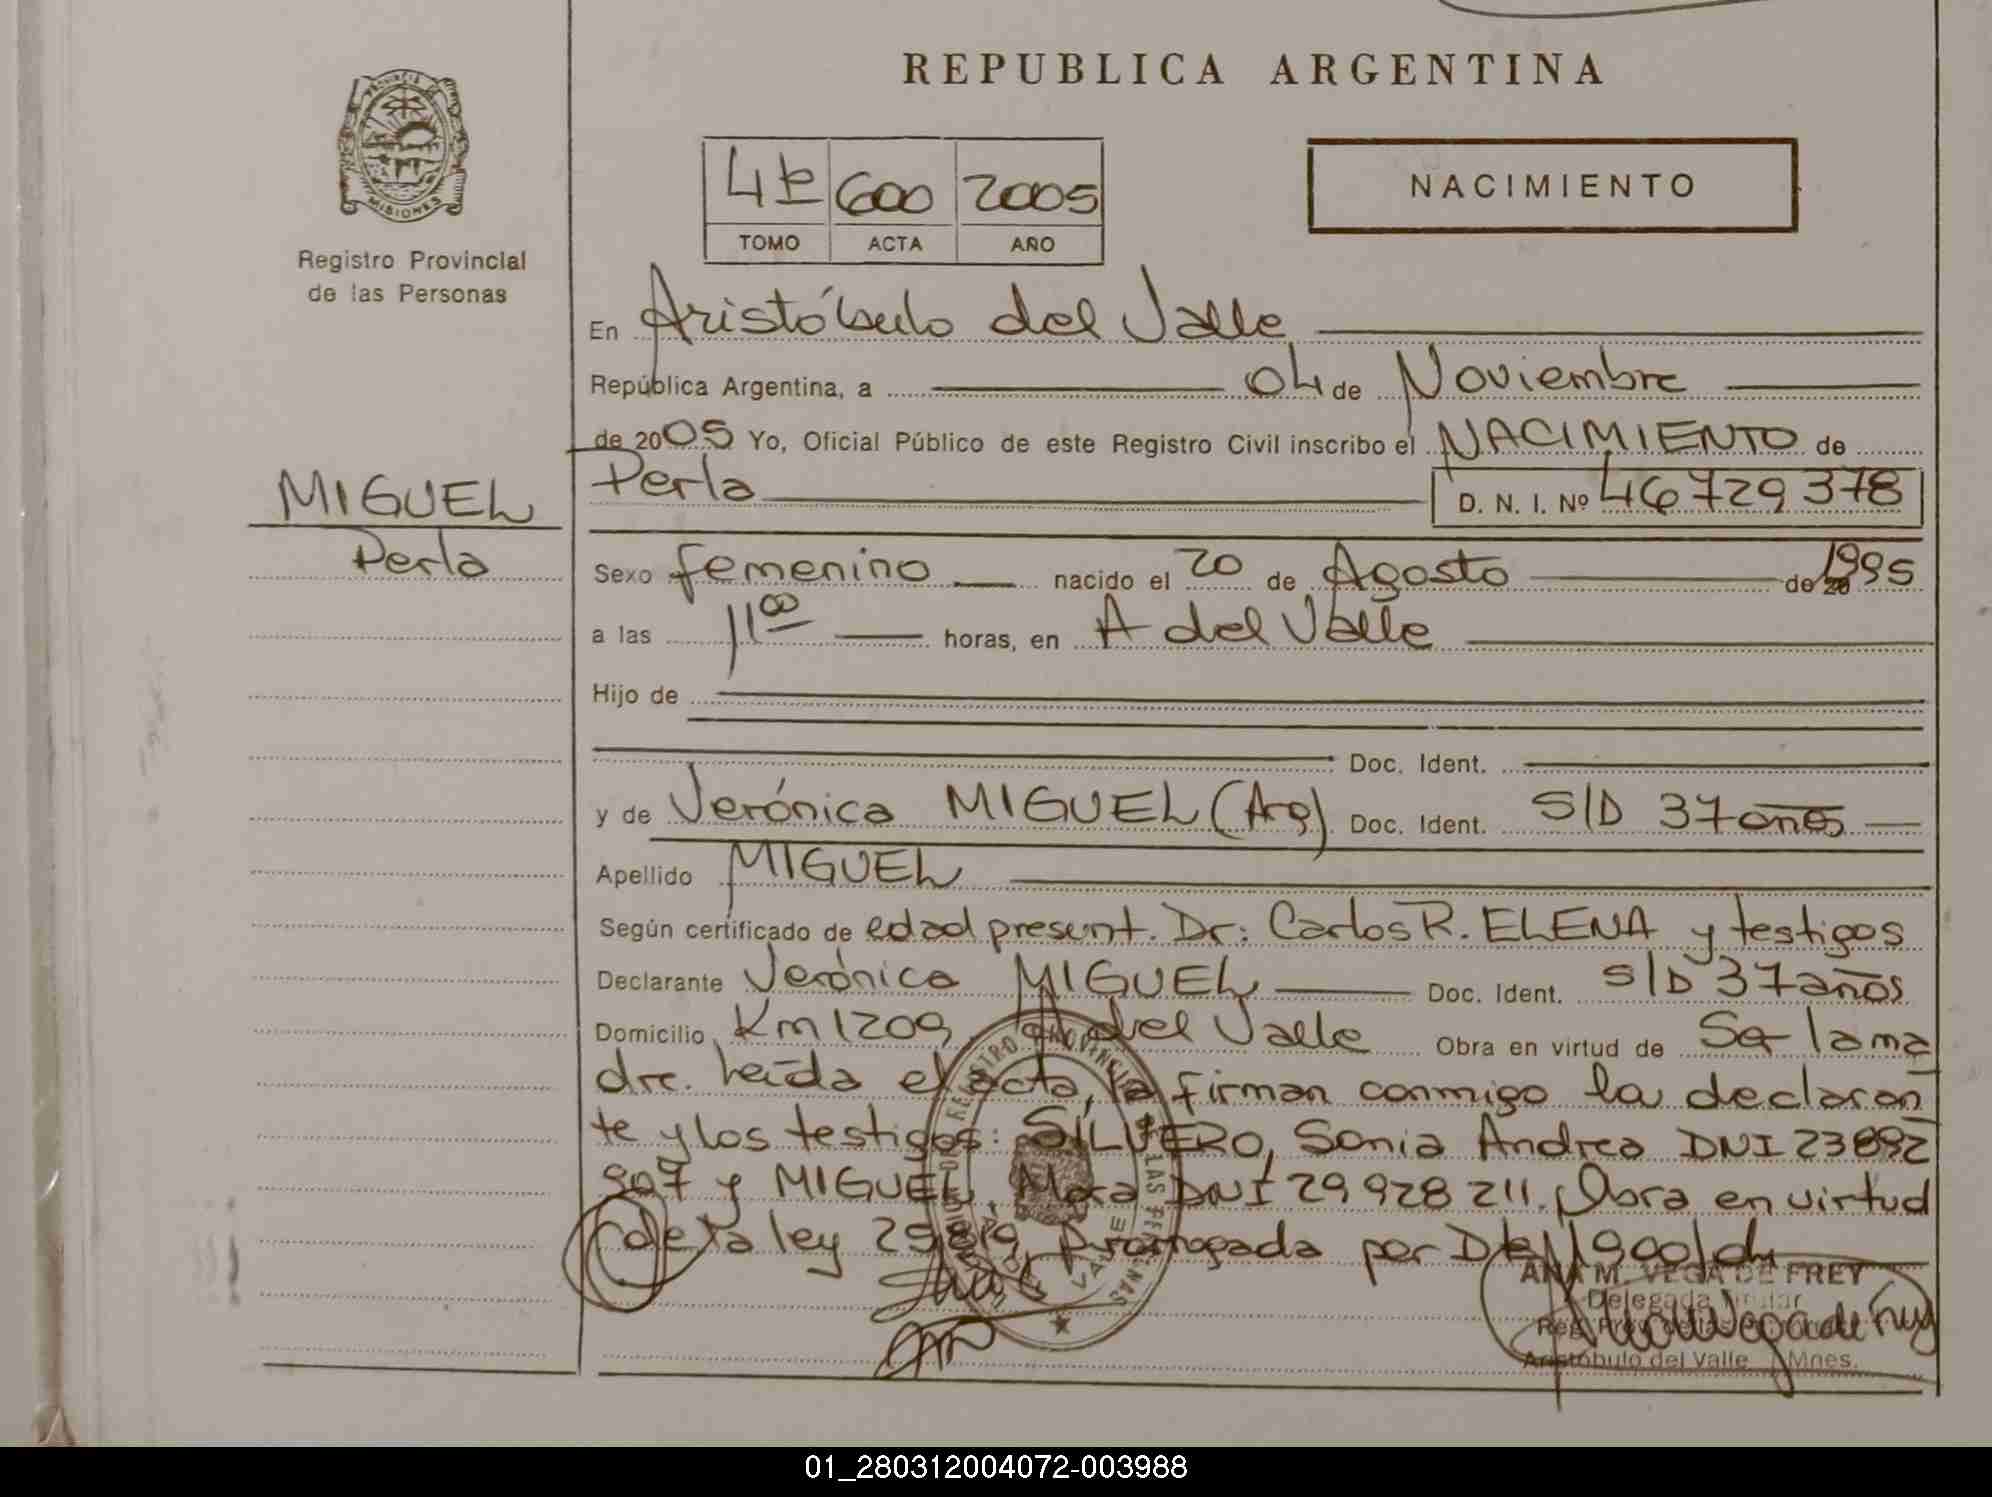 REPUBLICA ARGENTINA
PROVINCIA
MISIONES
Registro Provincial
de las Personas
4º 600 2005
TOMO ACTA AÑO
NACIMIENTO
En Aristóbulo del Valle
República Argentina, a 04 de Noviembre
de 2005 Yo, Oficial Público de este Registro Civil inscribo el NACIMIENTO de
MIGUEL
Perla
Perla D. N. I. Nº 46729378
Sexo femenino nacido el 20 de Agosto de 1995
a las 1100 horas, en A del Valle
Hijo de
Doc. Ident.
y de Verónica MIGUEL (Arg) Doc. Ident. S/D 37 años
Apellido MIGUEL
Según certificado de edad present. Dr: Carlos R. ELENA y testigos
Declarante Verónica MIGUEL Doc. Ident. S/D 37 años
Domicilio Km 1209 A del Valle Obra en virtud de Ser la ma
dre. Leída el acta, la firman conmigo la declaran
te y los testigos: SILVERO, Sonia Andrea DNI 23892
907 y MIGUEL, Mora DNI 29 928 211. Obra en virtud
de la ley 25819, Prorrogada por Dto 1900/04
REGISTRO PROVINCIAL DE LAS PERSONAS
ANA M. VEGA DE FREY
Delegada Titular
Reg. Prov. de las
Aristóbulo del Valle Mnes.
01_280312004072-003988